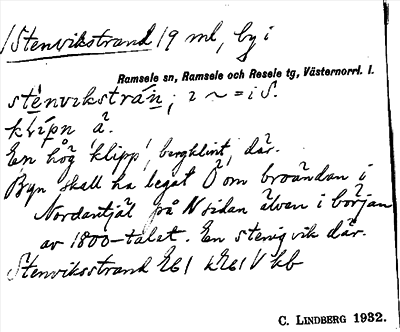 /Stenvikstrand 19 ml, by i
Ramsele sn, Ramsele och Resele tg, Västernorrl. l.
stènvikstrán; 2 ~ = i S.
klípn å.
En hög 'klipp', bergklint, där.
Byn skall ha legat Ö om broändan i
Nordantjäl på N sidan älven i början
av 1800-talet. En stenig vik där.
Stenviksstrand kb
C. LINDBERG 1932.